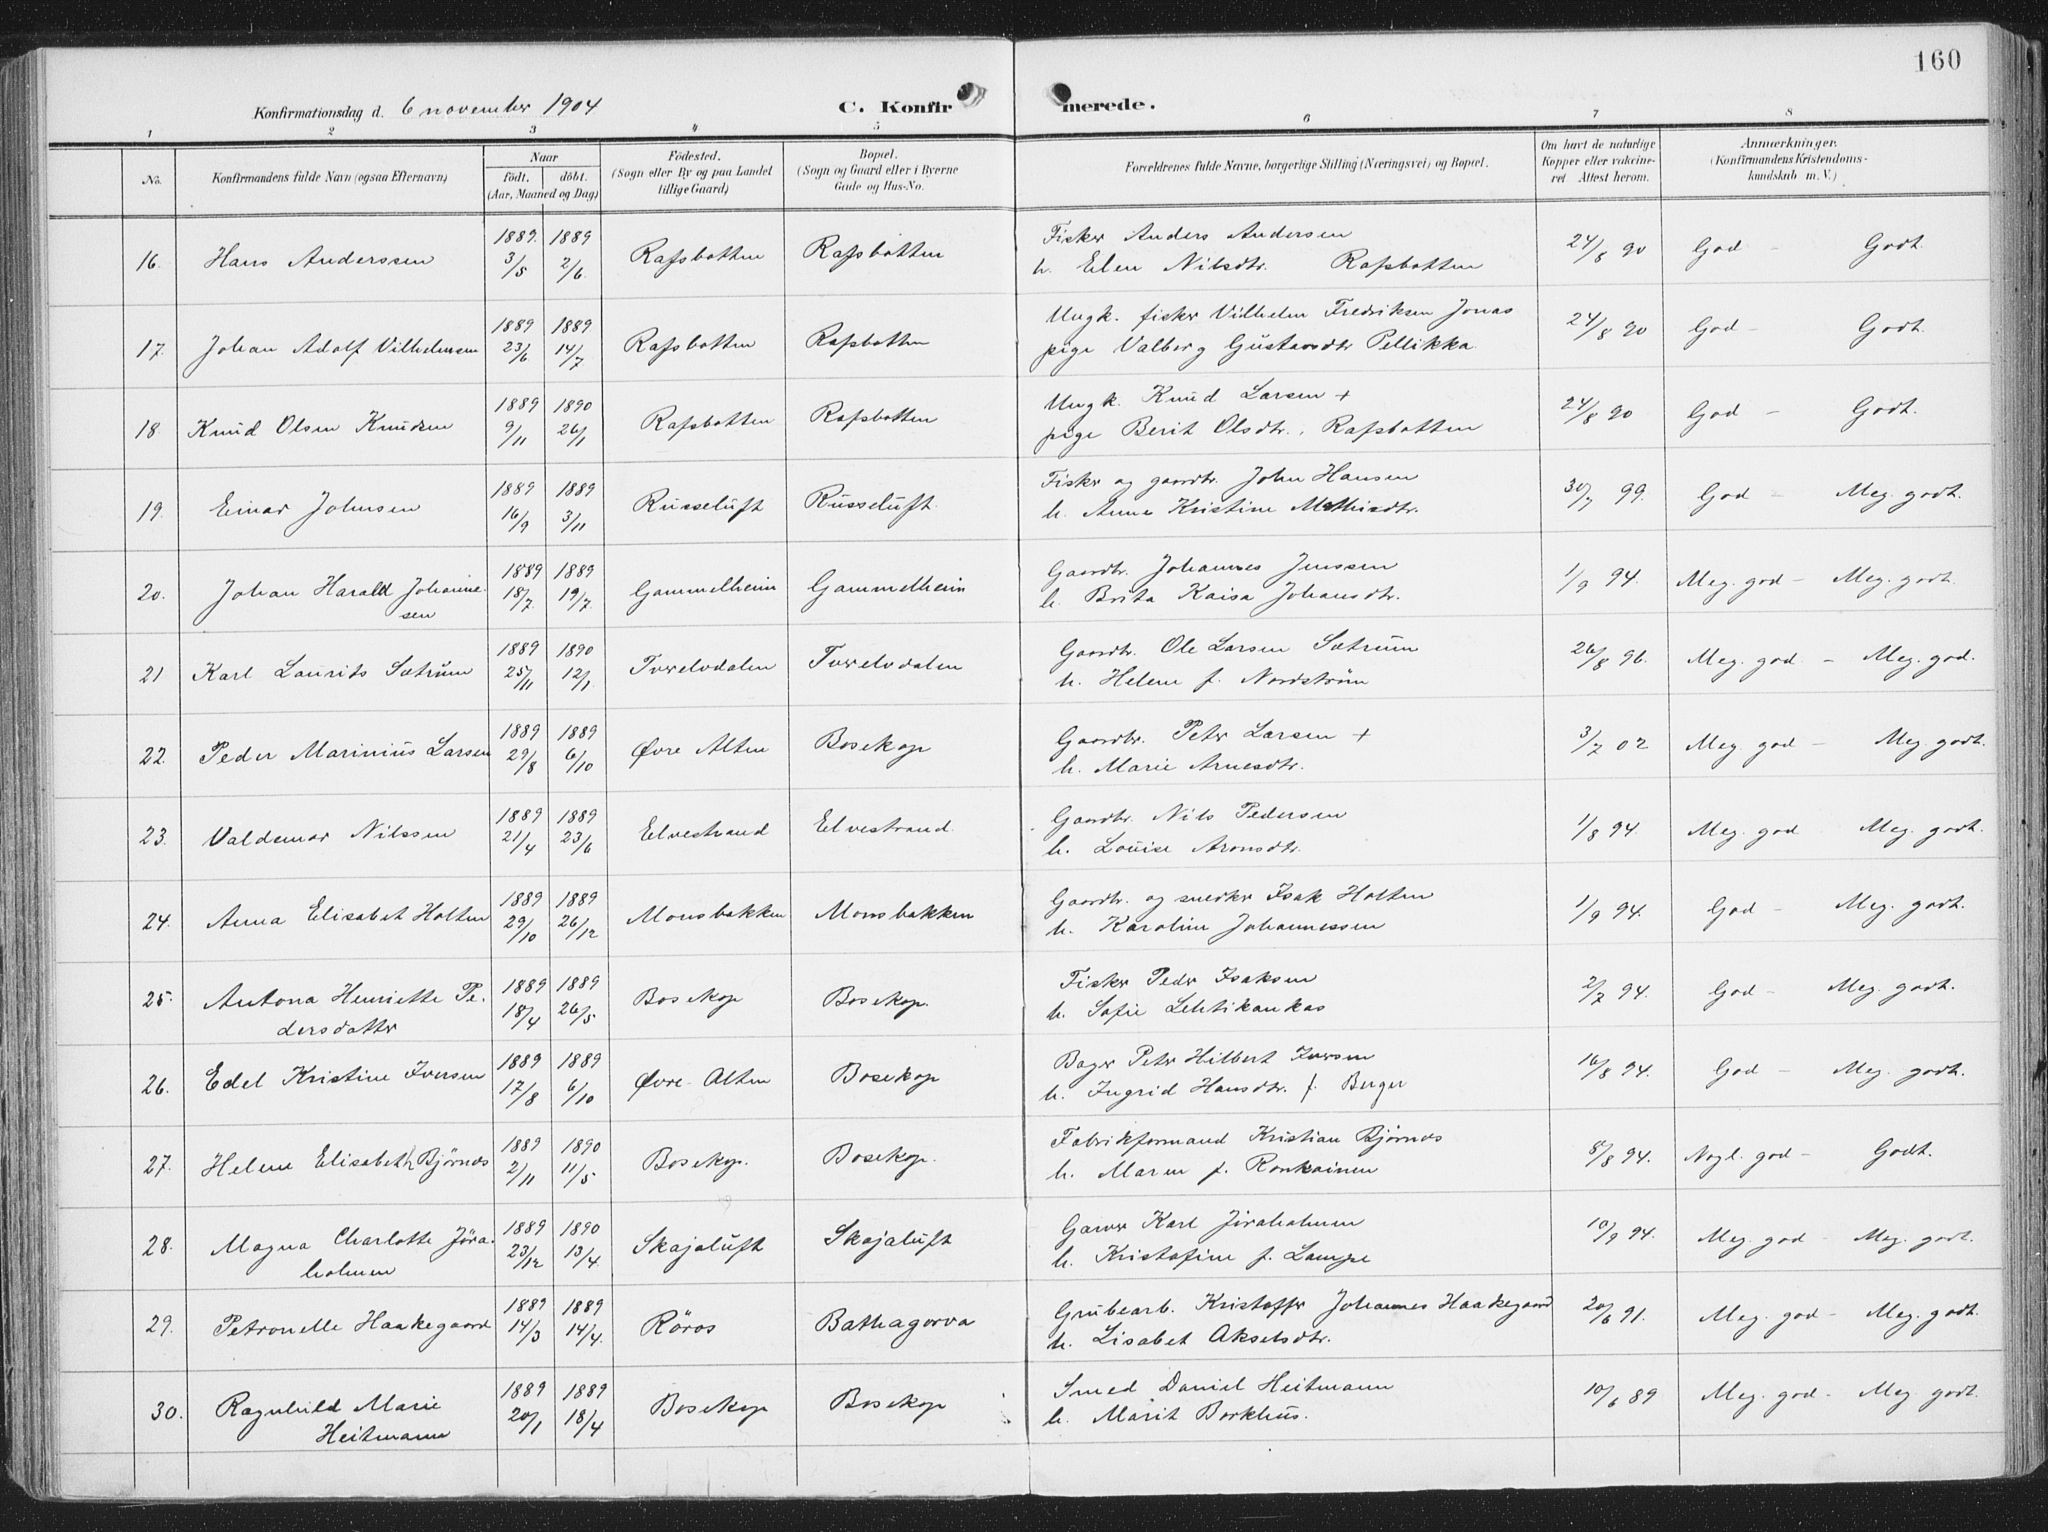 160
Konfirmationsdag d. 6 november 1904 C. Konfirmerede.
1 2 3 4 5 6 7 8
No. Konfirmandens fulde Navn (ogsaa Efternavn) Naar født. døbt. (Aar, Maaned og Dag) Fødested. (Sogn eller By og paa Landet tillige Gaard) Bopæl. (Sogn og Gaard eller i Byerne Gade og Hus-No. Forældrenes fulde Navne, borgerlige Stilling (Næringsvei) og Bopæl. Om havt de naturlige Kopper eller vakcineret Attest herom. Anmærkninger. (Konfirmandens Kristendomskundskab m. V.)
16. Hans Anderssen 1889. 3/5 1889 2/6 Rafsbotten Rafsbotten Fisker Anders Andersen
h. Elen Nilsdtr. Rafsbotten 24/8 90 God - Godt.
17. Johan Adolf Vilhelmsen 1889 23/6 1889. 14/7 Rafsbotten Rafsbotten Ungk. fisker Vilhelm Fredriksen Jonas
pige Valborg Gustavsdtr Pellikka. 24/8 90 God - Godt.
18 Knud Olsen Knudsen 1889 9/11 1890 26/1 Rafsbotten Rafsbotten Ungk. Knud Larsen +
pige Berit Olsdtr. Rafsbotten 24/8 90 God - Godt.
19. Einar Johnsen 1889 16/9 1889 3/11 Russeluft Russeluft. Fisker og gaardbr. John Hansen
h. Anne Kristine Mathisdtr. 30/7 99. God - Meg. godt.
20. Johan Harald Johannesen 1889 18/7 1889 19/7 Gammelheim Gammelheim Gaardbr. Johannes Jenssen
h. Brita Kaisa Johansdtr. 1/9 94. Meg. god - Meg. godt.
21 Karl Laurits Sætrum 1889 25/11 1890 12/1 Tverelvdalen Tverelvdalen Gaardbr. Ole Larsen Sætrum
h. Helene f. Nordstrøm 26/8 96. Meg. god - Meg. god.
22. Peder Marinius Larsen 1889 29/8 1889 6/10 Øvre Alten Bosekop Gaardbr. Peter Larsen +
h. Marie Arnesdtr. 3/7 02 Meg. god - Meg. godt.
23. Valdemar Nilssen 1889 21/4 1889 23/6 Elvestrand Elvestrand. Gaardbr. Nils Pedersen
h. Louise Aronsdtr. 1/8 94. Meg. god Meg. godt.
24. Anna Elisabet Holten 1889 29/10 1889 26/12 Monsbakken Monsbakken Gaardbr. og snedker Isak Holten
h. Karoline Johannessen 1/9 94. God - Meg. godt.
25. Antona Henriette Pedersdatter 1889 18/4 1889 26/5 Bosekop Bosekop. Fisker Peder Isaksen
h. Sofie Lehtikankas 2/7 94. God - Meg. godt.
26. Edel Kristine Iversen 1889 17/8 1889 6/10 Øvre-Alten Bosekop Bager Peter Hilbert Iversen
h. Ingrid Hansdtr. f. Berger 16/8 94. God - Meg. godt.
27. Helene Elisabeth Bjørnås 1889 2/11 1890 11/5 Bosekop. Bosekop. Fabrikformand Kristian Bjørnås
h. Maren f. Ronkainen 8/8 94. Nogl. god - Godt.
28. Magna Charlotte Jøraholmen 1889 23/12 1890 13/4 Skajaluft Skajaluft Garver Karl Jøraholmen
h. Kristofine f. Lampe 10/9 94. Meg. god - Meg. godt.
29. Petronelle Haakegaard 1889 14/3 1889 14/4. Röros Bathagorva Grubearb. Kristoffer Johannes Haakegaard
h. Lisabet Akselsdtr. 20/6 91. Meg. god - Meg. godt.
30. Ragnhild Marie Heitmann 1889 20/1 1889 18/4 Bosekop Bosekop Smed Daniel Heitmann
h. Marit Borkhus. 10/6 89 Meg. god - Meg. godt.